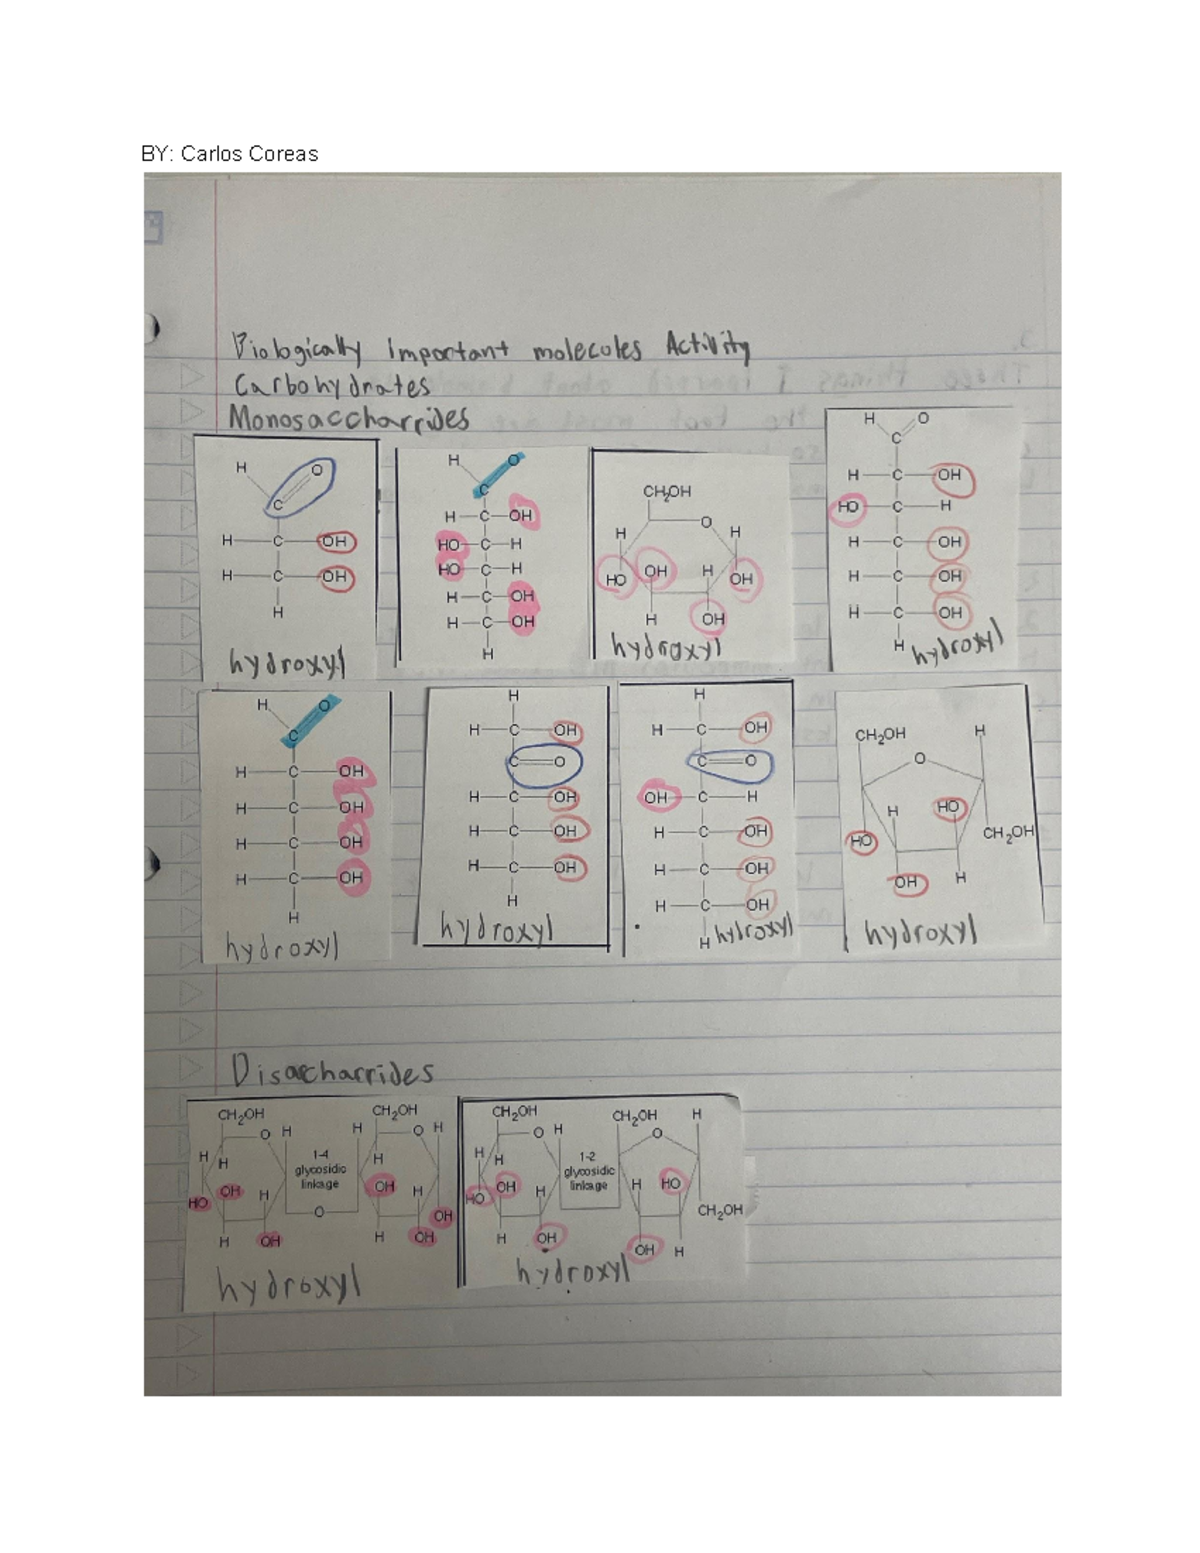 BY: Carlos Coreas
Biologically important molecoles Activity
Carbohydrates
Monosaccharrides
H O
C
H C OH
H C OH
H
hydroxyl
H O
C
H C OH
HO C H
HO C H
H C OH
H C OH
H
CH2OH
O
H H
HO OH H OH
H OH
hydroxyl
H O
C
H C OH
HO C H
H C OH
H C OH
H C OH
H
hydroxyl
H O
C
H C OH
H C OH
H C OH
H C OH
H
hydroxyl
H
H C OH
C O
H C OH
H C OH
H C OH
H
hydroxyl
H
H C OH
C O
OH C H
H C OH
H C OH
H C OH
H
hydroxyl
CH2OH H
O
H HO
HO CH2OH
OH H
hydroxyl
Disaccharrides
CH2OH CH2OH
O H H O H
H H H
1-4
glycosidic
linkage
HO OH H OH H OH
O
H OH H OH
hydroxyl
CH2OH CH2OH H
O H O
H H
1-2
glycosidic
linkage
HO OH H H HO
CH2OH
H OH OH H
hydroxyl